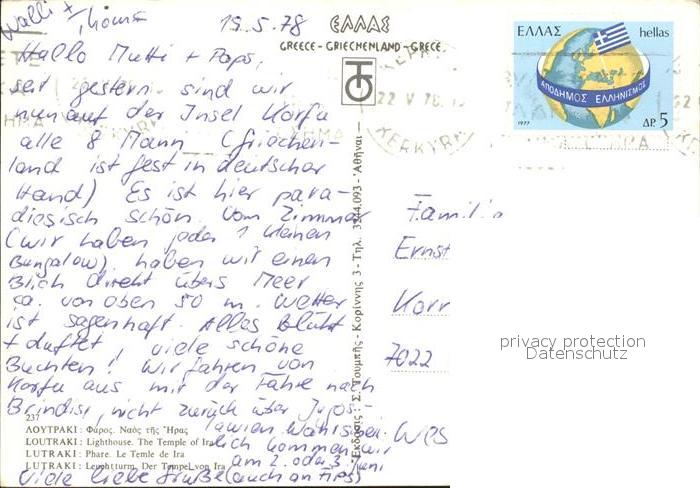 19.5.78
Hallo Mutti + Paps,
seit gestern sind wir
nun auf der Insel Korfu
alle 8 Mann (Griechen-
land ist fest in deutscher
Hand) Es ist hier para-
diesisch schön. Vom Zimmer
(wir haben jeder 1 kleinen
Bungalow) haben wir einen
Blick direkt übers Meer
ca. von oben 50 m. Wetter
ist sagenhaft. Alles blüht
+ duftet, viele schöne
Buchten! Wir fahren von
Korfu aus mit der Fähre nach
Brindisi, nicht zurück über Jugos-
lawien. Wahrschein-
lich kommen wir
am 2. oder 3. Juni
Viele liebe Grüße (auch an Fips)
Walli +
ΕΛΛΑΣ
GREECE - GRIECHENLAND - GRECE
ΕΛΛΑΣ hellas
ΑΠΟΔΗΜΟΣ ΕΛΛΗΝΙΣΜΟΣ
1977 ΔΡ. 5
22 V 78
KERKYRA
Ἐκδόσεις: Σ. Τουμπῆς - Κορίννης 3 - Τηλ. 3244.093 - Ἀθῆναι
Famili
Ernst
Korr
7022
privacy protection
Datenschutz
237
ΛΟΥΤΡΑΚΙ: Φάρος. Ναὸς τῆς Ἥρας
LOUTRAKI: Lighthouse. The Temple of Ira
LUTRAKI: Phare. Le Temle de Ira
LUTRAKI: Leuchtturm. Der Tempel von Ira